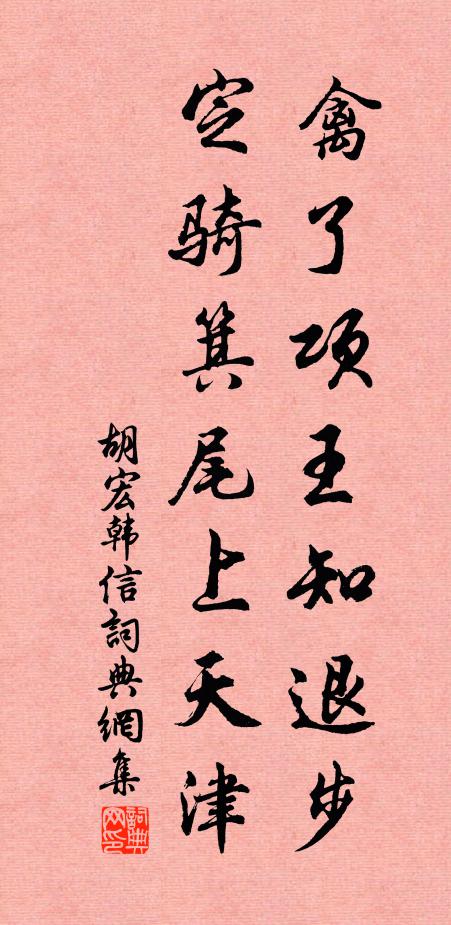 禽了项王知退步
定骑箕尾上天津
胡宏韩信詞典網集
詞典网印